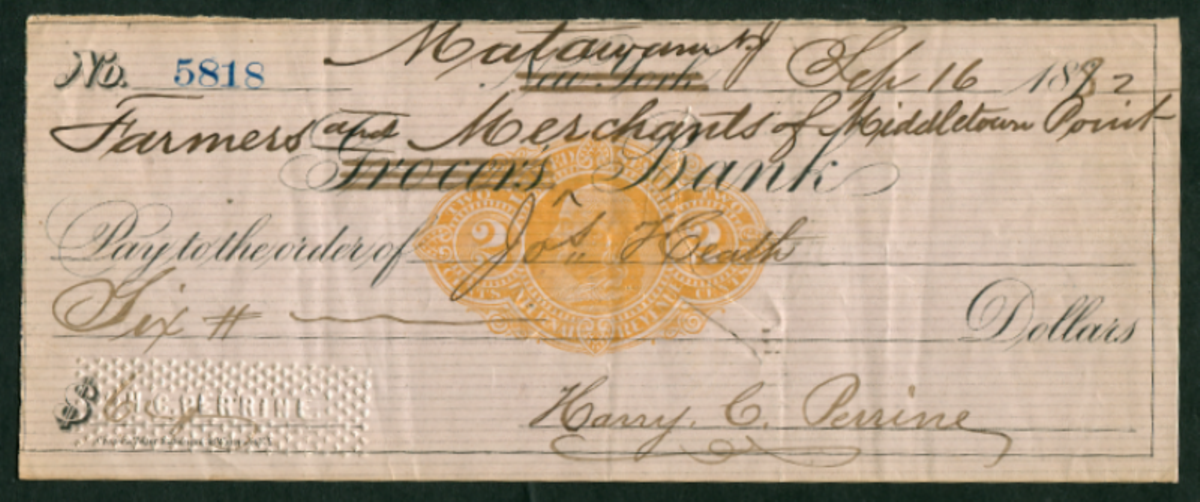 No. 5818 Matawan NJ Sep 16 1882
New York
Farmers and Merchants of Middletown Point
Grocers Bank
Pay to the order of Jos. Heath
Six # Dollars
$ 6
H.C. PERRINE
Harry. C. Perrine
TWO 2 CENTS
TWO 2 CENTS